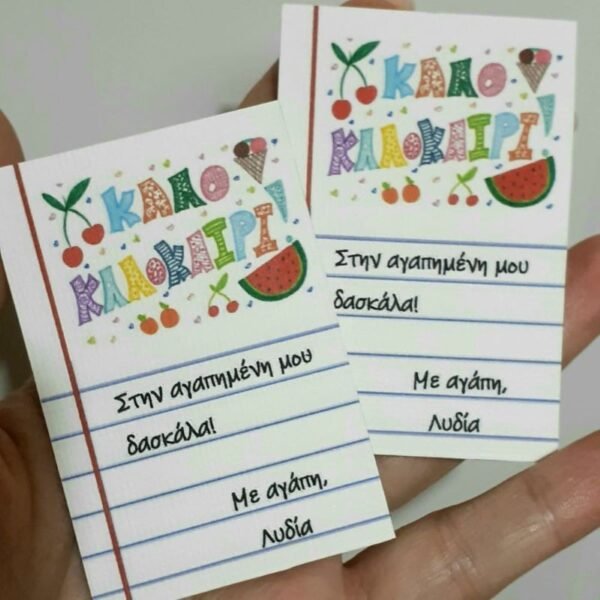 ΚΑΛΟ
ΚΑΛΟΚΑΙΡΙ!
Στην αγαπημένη μου
δασκάλα!
Με αγάπη,
Λυδία
ΚΑΛΟ
ΚΑΛΟΚΑΙΡΙ!
Στην αγαπημένη μου
δασκάλα!
Με αγάπη,
Λυδία